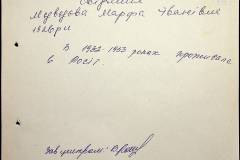 Медведова Марфа Іванівна
1926 р.н
В 1932-1933 роках проживала
в Росії.
Зав. архівом: